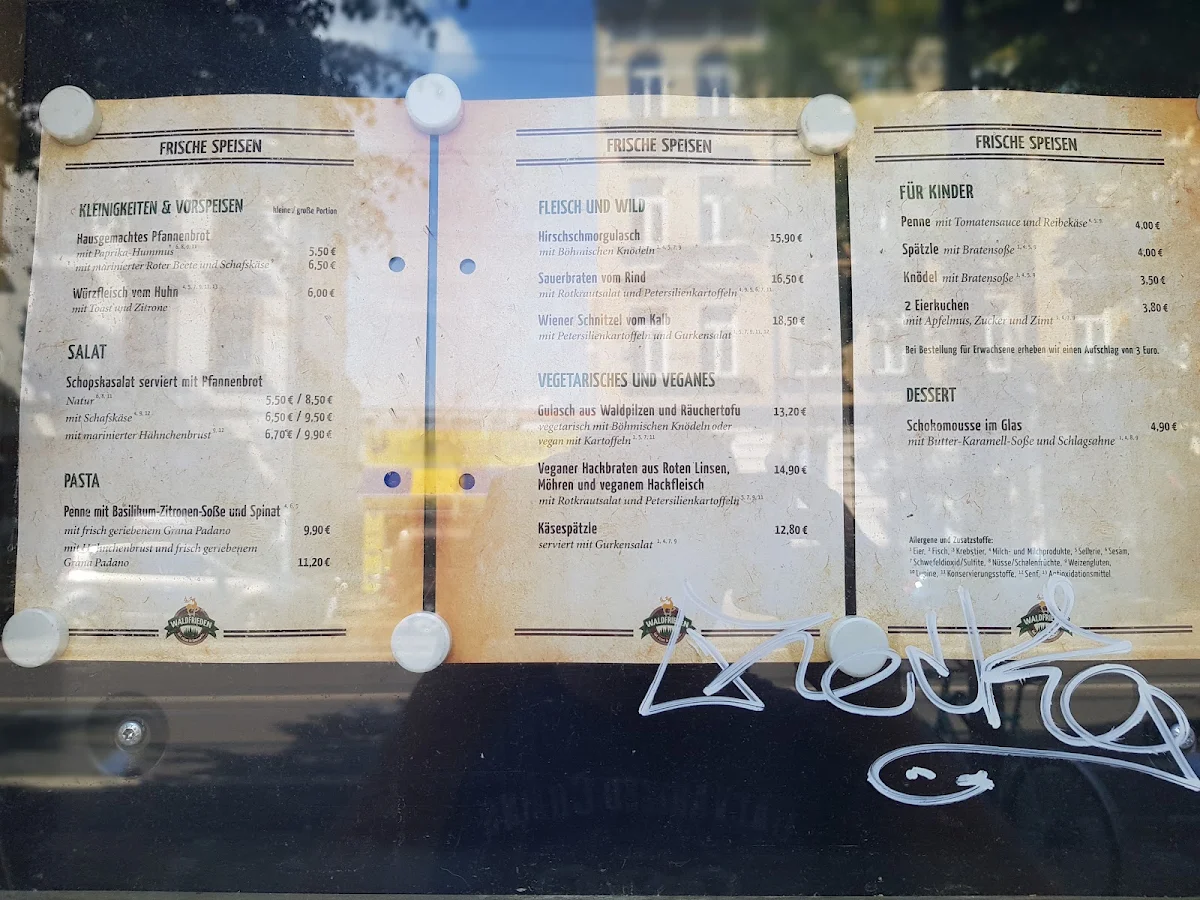 FRISCHE SPEISEN
KLEINIGKEITEN & VORSPEISEN kleine / große Portion
Hausgemachtes Pfannenbrot
mit Paprika-Hummus 5,50 €
mit marinierter Roter Beete und Schafskäse 6,50 €
Würzfleisch vom Huhn 6,00 €
mit Toast und Zitrone
SALAT
Schopskasalat serviert mit Pfannenbrot
Natur 5,50 € / 8,50 €
mit Schafskäse 6,50 € / 9,50 €
mit marinierter Hähnchenbrust 6,70 € / 9,90 €
PASTA
Penne mit Basilikum-Zitronen-Soße und Spinat
mit frisch geriebenem Grana Padano 9,90 €
mit Hähnchenbrust und frisch geriebenem
Grana Padano 11,20 €
WALDFRIEDEN
FRISCHE SPEISEN
FLEISCH UND WILD
Hirschschmorgulasch 15,90 €
mit Böhmischen Knödeln
Sauerbraten vom Rind 16,50 €
mit Rotkrautsalat und Petersilienkartoffeln
Wiener Schnitzel vom Kalb 18,50 €
mit Petersilienkartoffeln und Gurkensalat
VEGETARISCHES UND VEGANES
Gulasch aus Waldpilzen und Räuchertofu 13,20 €
vegetarisch mit Böhmischen Knödeln oder
vegan mit Kartoffeln
Veganer Hackbraten aus Roten Linsen, 14,90 €
Möhren und veganem Hackfleisch
mit Rotkrautsalat und Petersilienkartoffeln
Käsespätzle 12,80 €
serviert mit Gurkensalat
WALDFRIEDEN
FRISCHE SPEISEN
FÜR KINDER
Penne mit Tomatensauce und Reibekäse 4,00 €
Spätzle mit Bratensoße 4,00 €
Knödel mit Bratensoße 3,50 €
2 Eierkuchen 3,80 €
mit Apfelmus, Zucker und Zimt
Bei Bestellung für Erwachsene erheben wir einen Aufschlag von 3 Euro.
DESSERT
Schokomousse im Glas 4,90 €
mit Bitter-Karamell-Soße und Schlagsahne
Allergene und Zusatzstoffe:
¹ Eier, ² Fisch, ³ Krebstier, ⁴ Milch- und Milchprodukte, ⁵ Sellerie, ⁶ Sesam,
⁷ Schwefeldioxid/Sulfite, ⁸ Nüsse/Schalenfrüchte, ⁹ Weizengluten,
¹⁰ Lupine, ¹¹ Konservierungsstoffe, ¹² Senf, ¹³ Antioxidationsmittel
WALDFRIEDEN